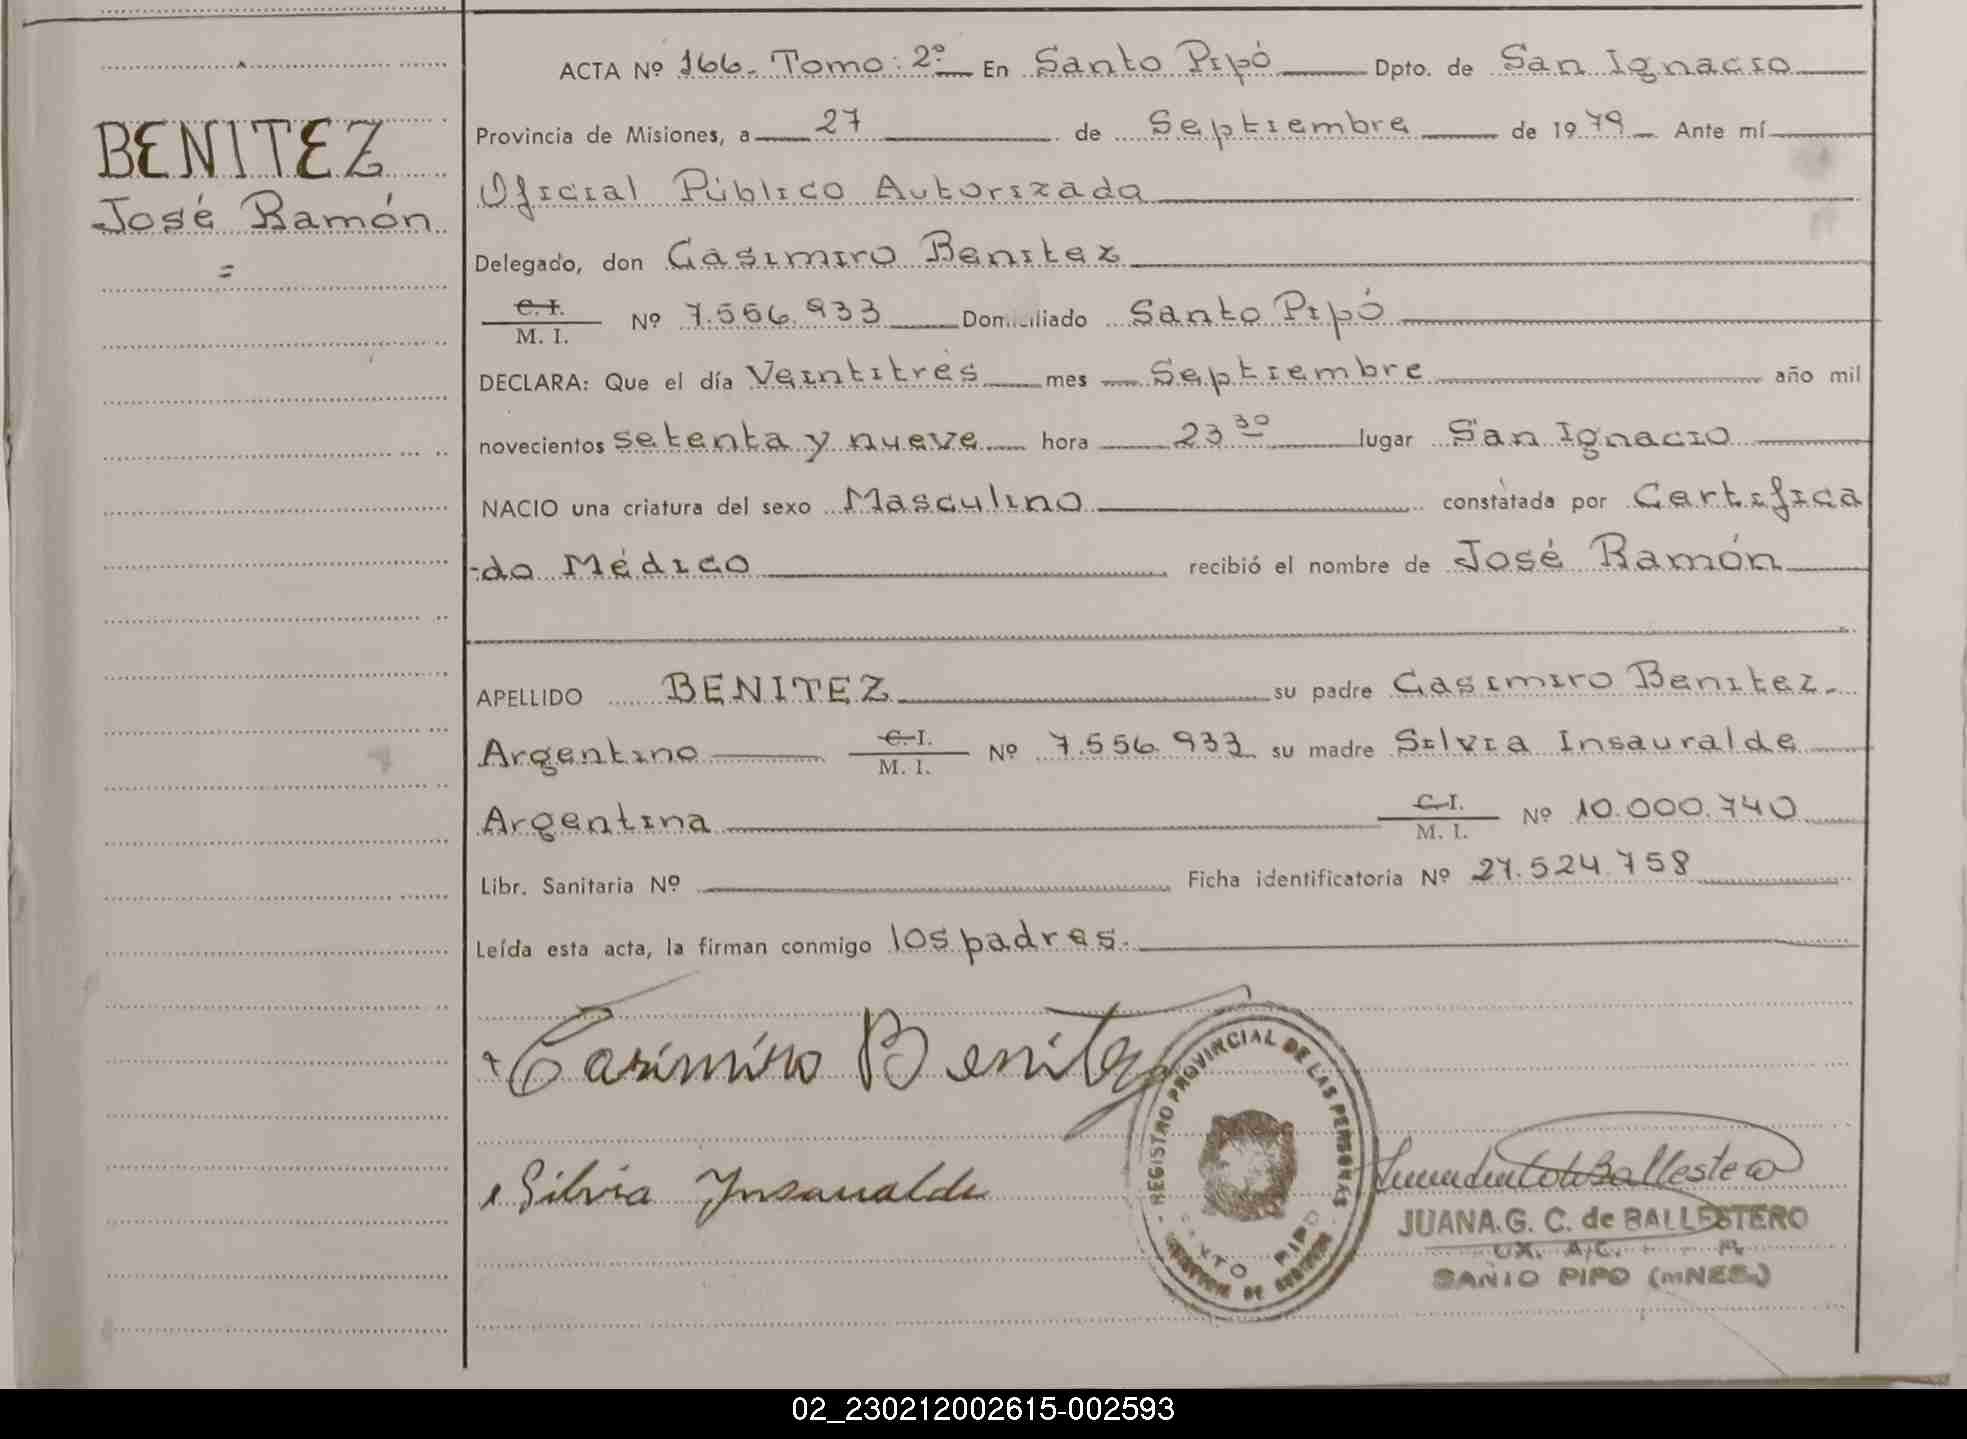 ACTA Nº 166. Tomo: 2º En Santo Pipó Dpto. de San Ignacio
BENITEZ
José Ramón
=
Provincia de Misiones, a 27 de Septiembre de 1979 Ante mí
Oficial Público Autorizada
Delegado, don Casimiro Benitez
C. I.
M. I. Nº 7.556.933 Domiciliado Santo Pipó
DECLARA: Que el día Veintitrés mes Septiembre año mil
novecientos setenta y nueve hora 23 30 lugar San Ignacio
NACIO una criatura del sexo Masculino constatada por Certifica
-do Médico recibió el nombre de José Ramón
APELLIDO BENITEZ su padre Casimiro Benitez.
Argentino C. I.
M. I. Nº 7.556.933 su madre Silvia Insauralde
Argentina C. I.
M. I. Nº 10.000.740
Libr. Sanitaria Nº Ficha identificatoria Nº 27.524.758
Leída esta acta, la firman conmigo los padres.
Casimiro Benitez
Silvia Ynsauralde
REGISTRO PROVINCIAL DE LAS PERSONAS
PIPO
DE
Ballestero
JUANA. G. C. de BALLESTERO
SANTO PIPO (MNES.)
02_230212002615-002593